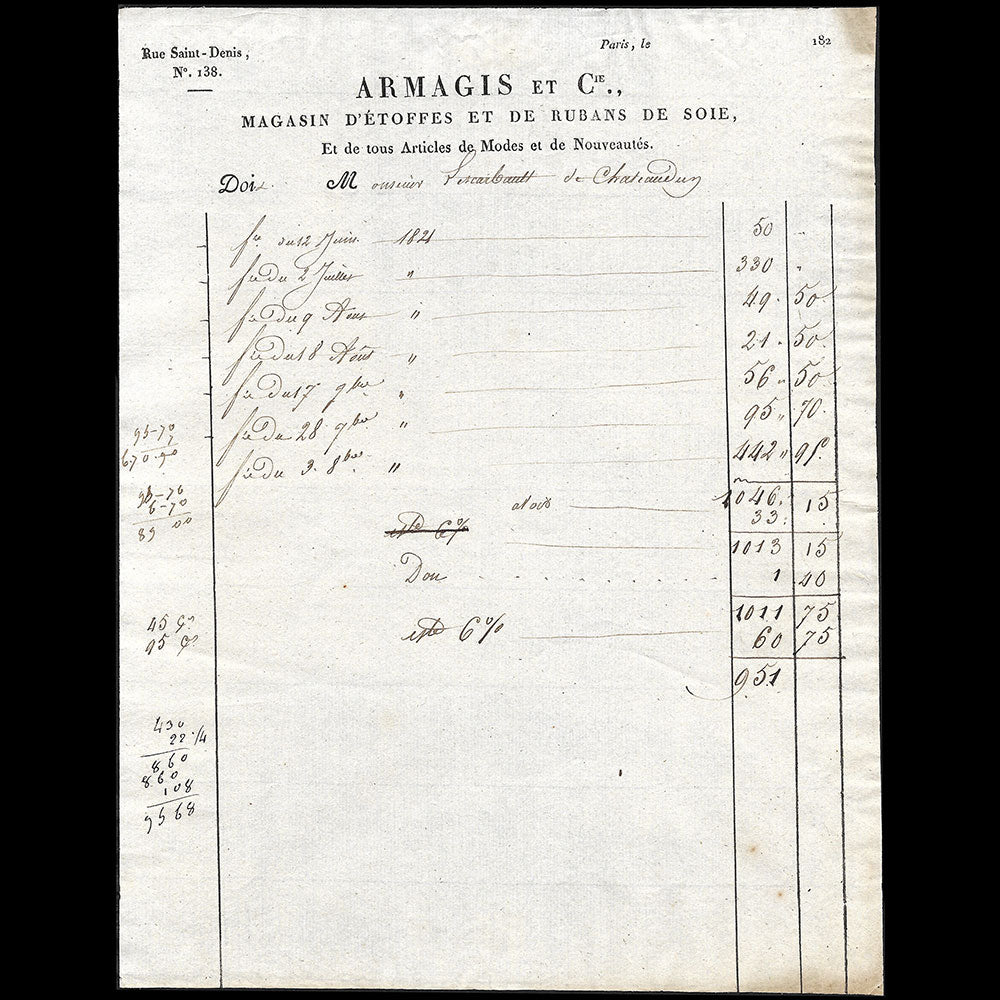 Rue Saint-Denis,
N°. 138.
Paris, le 182
ARMAGIS ET CIE.,
MAGASIN D'ÉTOFFES ET DE RUBANS DE SOIE,
Et de tous Articles de Modes et de Nouveautés.
Doit Monsieur Lescarbault de Chateaudun
fre du 12 Juin 1821 50 "
fre du 2 Juillet " 330 "
fre du 9 Aout " 49 50
fre du 18 Août " 21 50
fre du 17 9bre " 56 50
fre du 28 9bre " 95 70
fre du 3 8bre " 442 95
1046 15
avoir 33
6% 1013 15
Don 1 40
1011 75
6% 60 75
951
95-70
7
670.90
95-70
6-70
89 00
45
95
430
22 1/4
860
860
108
9568